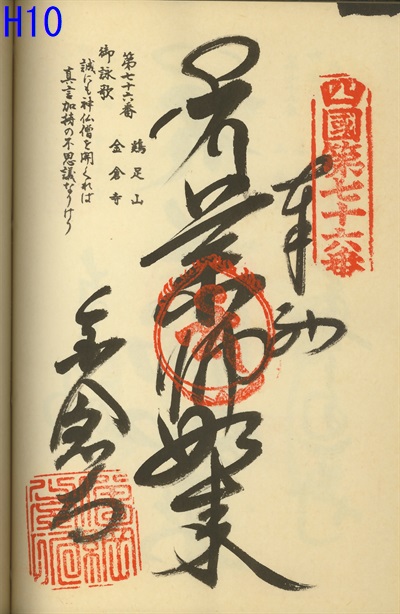 H10
四國第七十六番
奉納
薬師如来
金倉寺
第七十六番
鶏足山
金倉寺
御詠歌
誠にも神仏僧を開くれば
真言加持の不思議なりけり